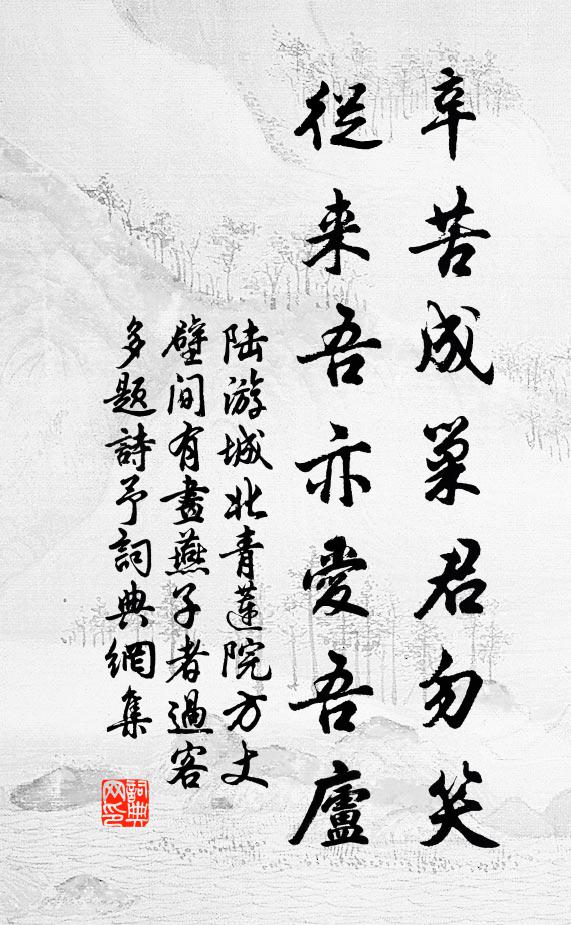 辛苦成巢君勿笑
從来吾亦愛吾廬
陆游城北青蓮院方丈
壁间有畫燕子者過客
多题詩予詞典網集
詞典网印